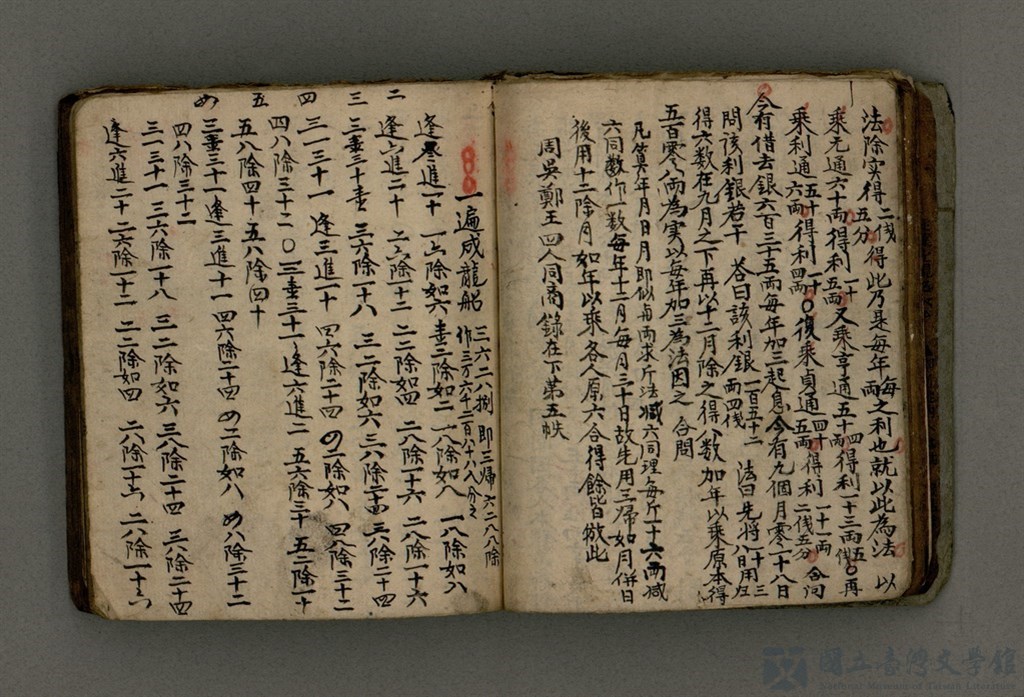 法除实得二戔五分得此乃是每年每兩之利也就以此為法以
乘元通六十兩得利一十五兩又乘亨通五十四兩得利一十三兩五戔〇再
乘利通五十六兩得利一十四兩〇復乘貞通四十五兩得利一十一兩二戔五分合问
今有借去銀六百三十五兩每年加三起息今有九個月零一十八日
問該利銀若干 答曰該利銀一百五十二兩四戔 法曰先將八日用三十归
得六数在九月之下再以十二月除之得八数加年以乘原本得
五百零八兩為实以每年加三為法因之 合問
凡筭年月日月即似每兩求斤法減六同理每斤十六兩減
六同数作一数每年十二月每月三十日故先用三帰如月併日
後用十二除月如年以乘各人原六合得餘皆倣此
周吳鄭王四人同商錄在下第五帙
一遍成龍船 三六二八捌即三帰六二八八除
作三万六千二百八十八八分之
二 逢叁進一十 一六除如六 壹二除如二 一八除如八 一八除如八
逢六進二十 二六除一十二 二二除如四 二八除一十六 二八除一十六
三 三壹三十壹 三六除一十八 三二除如六 三八除二十四 三八除二十四
四 三一三十一 逢三進一十 四六除二十四 四二除如八 四八除三十二
四八除三十二 〇三壹三十一 逢六進二 五六除三十 五二除一十
五 五八除四十 五八除四十
三壹三十一逢三進十一 四六除二十四 四二除如八 四八除三十二
四八除三十二
三一三十一 三六除一十八 三二除如六 三八除二十四 三八除二十四
逢六進二十 二六除一十二 二二除如四 二八除一十六 二八除一十六
國立臺灣文學館
National Museum of Taiwan Literature